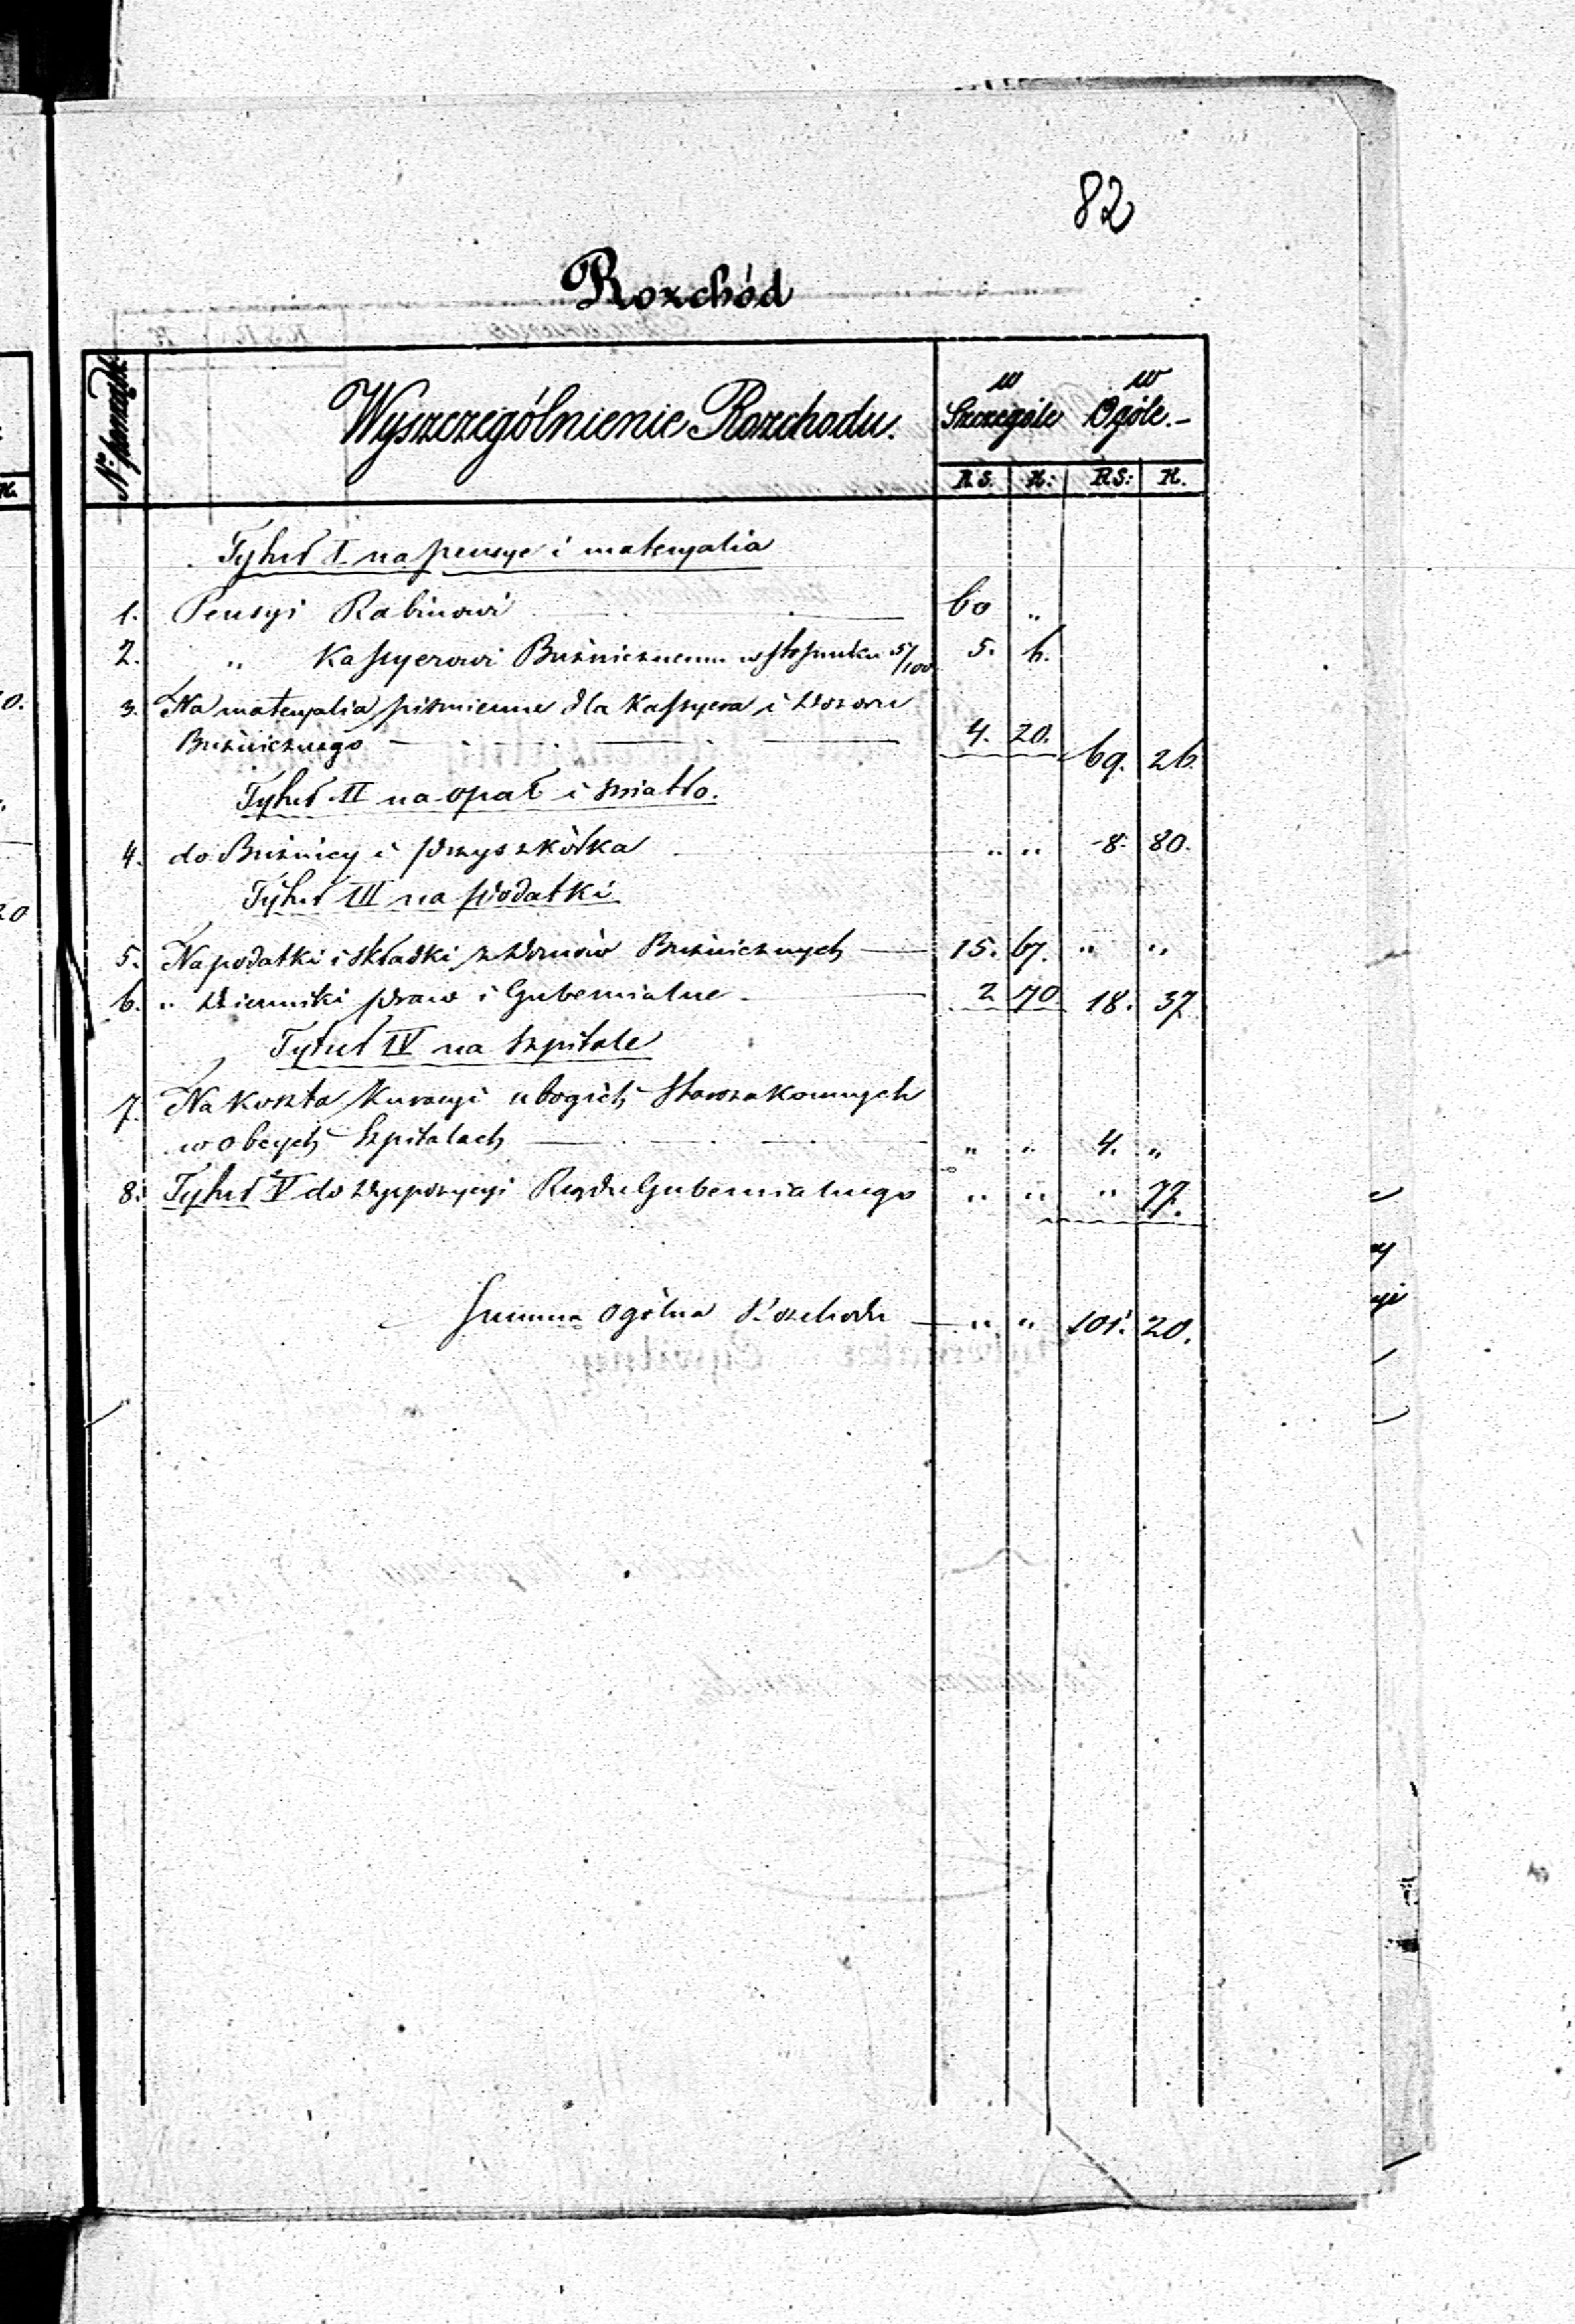 82
Rozchód
№ porządk. Wyszczególnienie Rozchodu. w Szczególe w Ogóle.-
R.S. K: R.S: K.
Tytuł I na pensye i materyalia
1. Pensyi Rabinowi 60 "
2. " Kassyerowi Bużnicznemu w stosunku 5/100 5. 6.
3. Na materyalia piśmienne dla Kassyera i Dozoru
Bużnicznego 4. 20. 69. 26.
Tytuł II na opał i światło.
4. do Bużnicy i przyszkółka " " 8. 80.
Tytuł III na podatki
5. Na podatki i składki z Domów Bużnicznych 15. 67. " "
6. " Dzienniki praw i Gubernialne 2 70 18. 37
Tytuł IV na Szpitale
7. Na koszta kuracyi ubogich Starozakonnych
w obcych Szpitalach " " 4. "
8. Tytuł V do dyspozycyi Rządu Gubernialnego " " " 77.
Summa ogólna Rozchodu " " 101. 20.